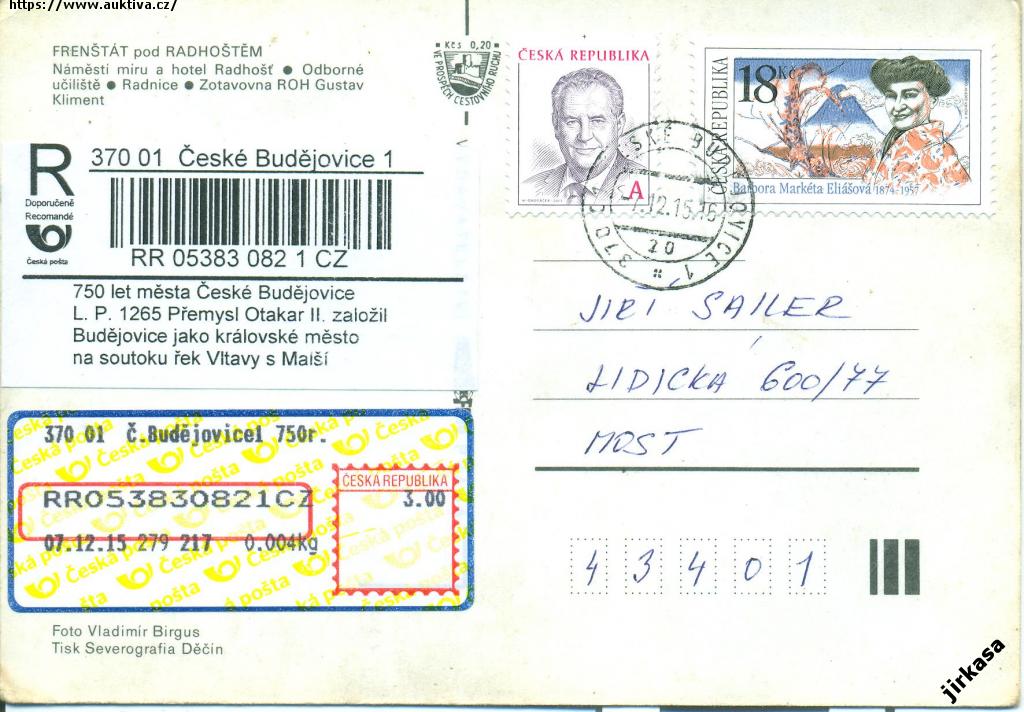 https://www.auktiva.cz/
FRENŠTÁT pod RADHOŠTĚM
Náměstí míru a hotel Radhošť ● Odborné
učiliště ● Radnice ● Zotavovna ROH Gustav
Kliment
Kčs 0,20
VE PROSPĚCH CESTOVNÍHO RUCHU
ČESKÁ REPUBLIKA
A
ČESKÁ REPUBLIKA
18 Kč
Barbora Markéta Eliášová 1874-1957
R
Doporučeně
Recomandé
Česká pošta
370 01 České Budějovice 1
RR 05383 082 1 CZ
750 let města České Budějovice
L. P. 1265 Přemysl Otakar II. založil
Budějovice jako královské město
na soutoku řek Vltavy s Malší
12.15
20
JIŘÍ SAILER
LIDICKÁ 600/77
MOST
43401
370 01 Č.Budějovice1 750r.
RR053830821CZ
ČESKÁ REPUBLIKA
3.00
07.12.15 279 217 0.004kg
Česká pošta
Foto Vladimír Birgus
Tisk Severografia Děčín
jirkasa